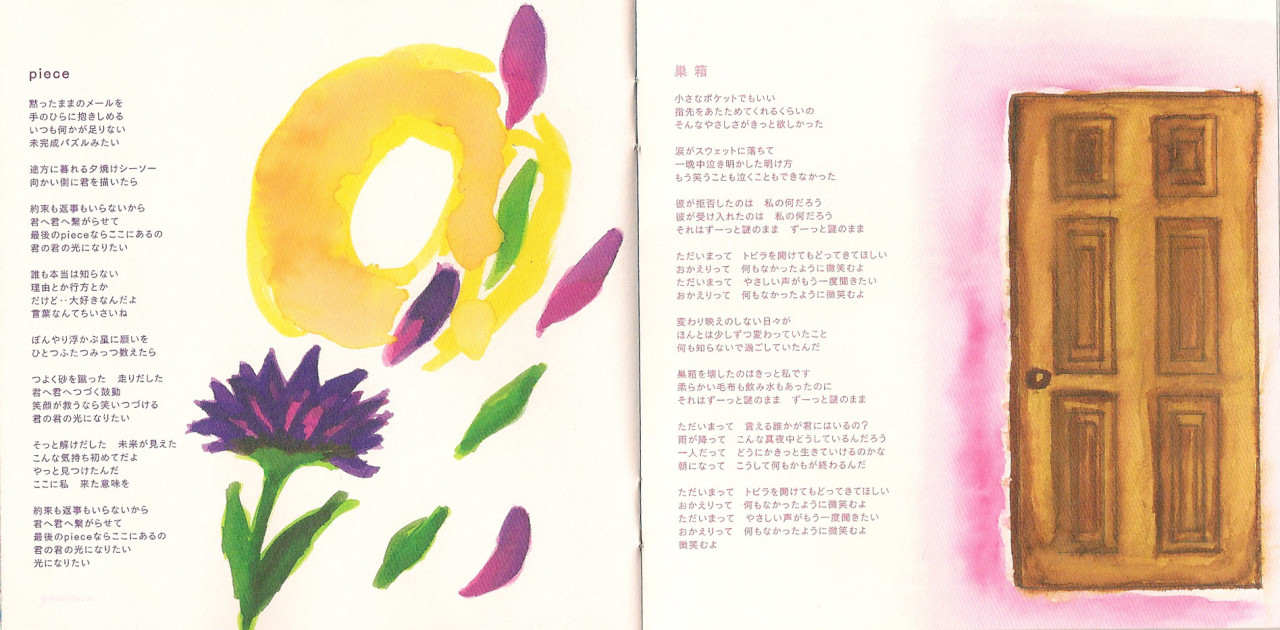 piece
黙ったままのメールを
手のひらに抱きしめる
いつも何かが足りない
未完成パズルみたい
途方に暮れる夕焼けシーソー
向かい側に君を描いたら
約束も返事もいらないから
君へ君へ繋がらせて
最後のpieceならここにあるの
君の君の光になりたい
誰も本当は知らない
理由とか行方とか
だけど‥大好きなんだよ
言葉なんてちいさいね
ぼんやり浮かぶ星に願いを
ひとつふたつみっつ数えたら
つよく砂を蹴った　走りだした
君へ君へつづく鼓動
笑顔が救うなら笑いつづける
君の君の光になりたい
そっと解けだした　未来が見えた
こんな気持ち初めてだよ
やっと見つけたんだ
ここに私　来た意味を
約束も返事もいらないから
君へ君へ繋がらせて
最後のpieceならここにあるの
君の君の光になりたい
光になりたい
巣箱
小さなポケットでもいい
指先をあたためてくれるくらいの
そんなやさしさがきっと欲しかった
涙がスウェットに落ちて
一晩中泣き明かした明け方
もう笑うことも泣くこともできなかった
彼が拒否したのは　私の何だろう
彼が受け入れたのは　私の何だろう
それはずーっと謎のまま　ずーっと謎のまま
ただいまって　トビラを開けてもどってきてほしい
おかえりって　何もなかったように微笑むよ
ただいまって　やさしい声がもう一度聞きたい
おかえりって　何もなかったように微笑むよ
変わり映えのしない日々が
ほんとは少しずつ変わっていたこと
何も知らないで過ごしていたんだ
巣箱を壊したのはきっと私です
柔らかい毛布も飲み水もあったのに
それはずーっと謎のまま　ずーっと謎のまま
ただいまって　言える誰かが君にはいるの?
雨が降って　こんな真夜中どうしているんだろう
一人だって　どうにかきっと生きていけるのかな
朝になって　こうして何もかもが終わるんだ
ただいまって　トビラを開けてもどってきてほしい
おかえりって　何もなかったように微笑むよ
ただいまって　やさしい声がもう一度聞きたい
おかえりって　何もなかったように微笑むよ
微笑むよ